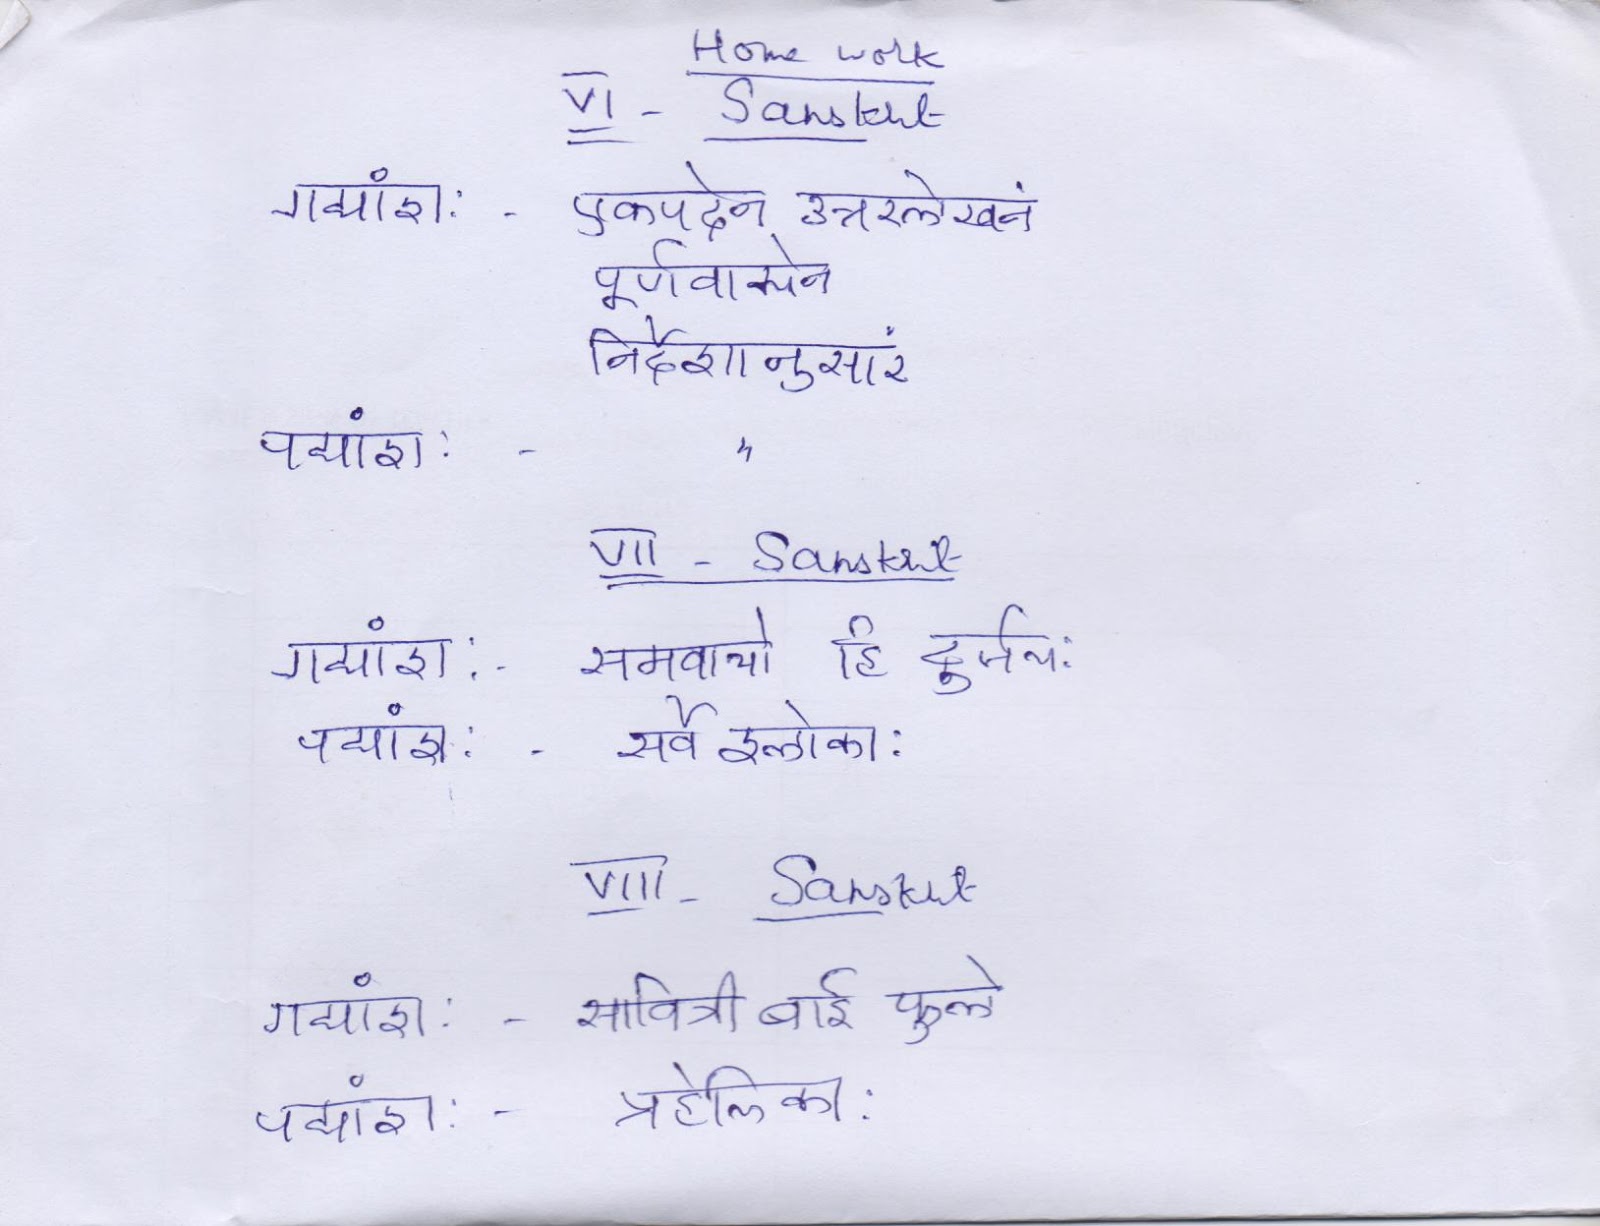 Home work
VI - Sanskrit
गद्यांशः - एकपदेन उत्तरलेखनं
पूर्णवाक्येन
निर्देशानुसारं
पद्यांशः - "
VII - Sanskrit
गद्यांशः - समवायो हि दुर्जयः
पद्यांशः - सर्वे श्लोकाः
VIII - Sanskrit
गद्यांशः - सावित्री बाई फुले
पद्यांशः - प्रहेलिकाः